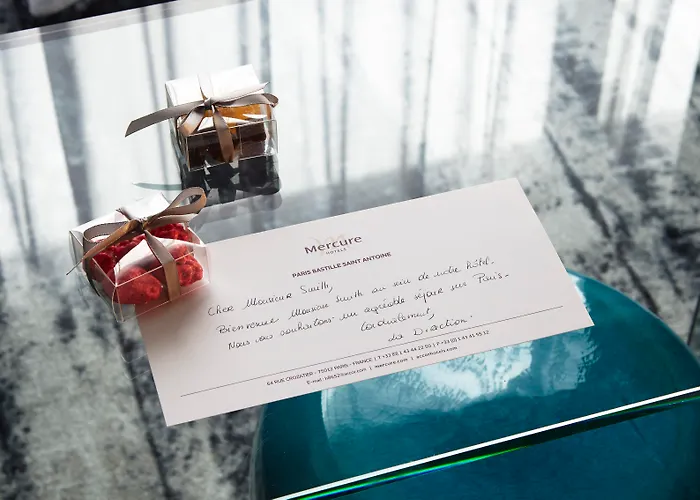 Mercure
HOTELS
PARIS BASTILLE SAINT ANTOINE
Cher Monsieur Smith,
Bienvenue Monsieur Smith au sein de notre hôtel.
Nous vous souhaitons un agréable séjour sur Paris.
Cordialement,
La Direction.
64 RUE CROZATIER - 75012 PARIS - FRANCE | T +33 (0)1 43
mercure.com | accorhotels.com